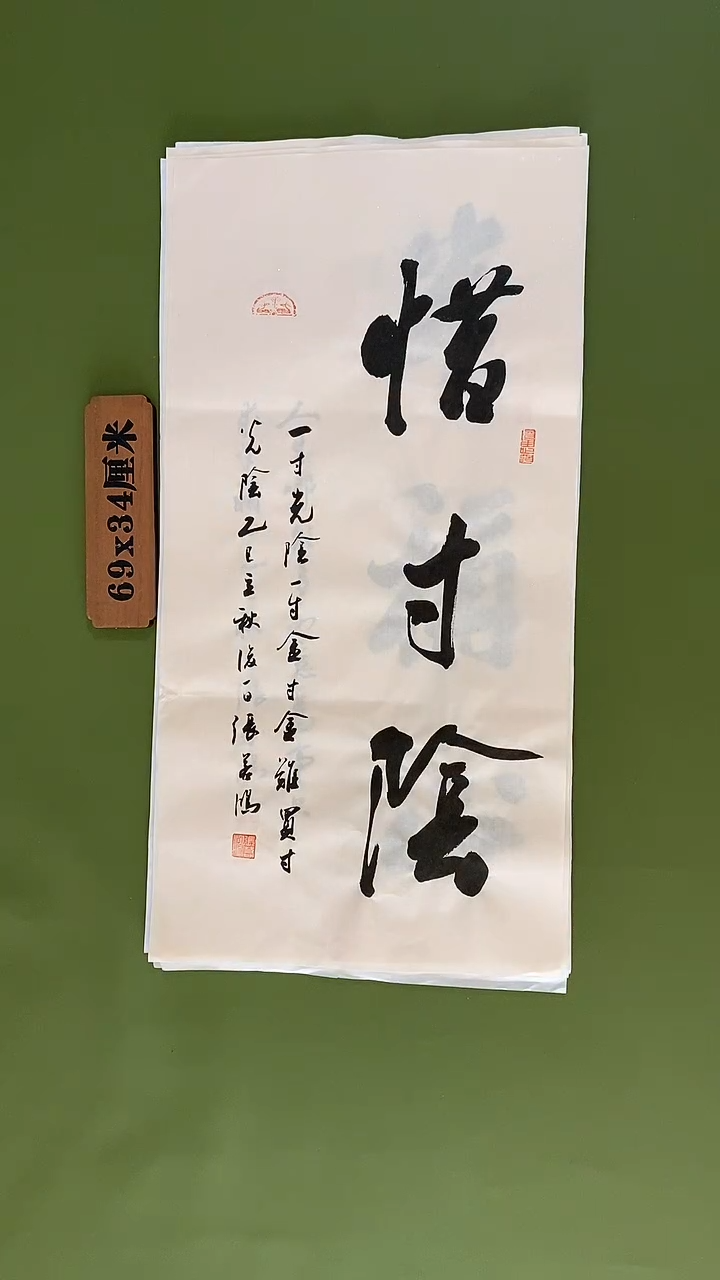 惜寸陰
一寸光陰一寸金寸金難買寸
光陰乙巳立秋後一日張若鴻
69x34厘米